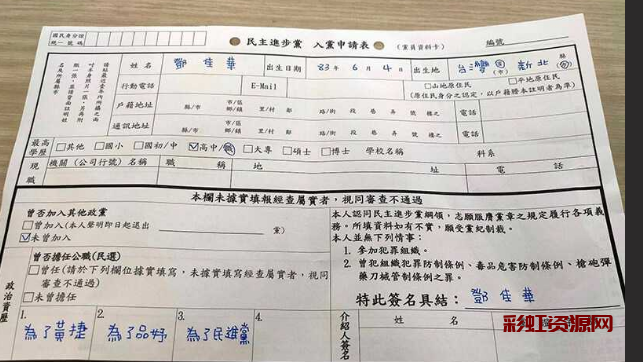 國民身分證
統一號碼
民主進步黨 入黨申請表 (黨員資料卡) 編號
請貼最近壹年內所攝之兩
吋半身照片一張,另再附
照一張,並請背面註明姓
名及所屬縣市
姓名 鄧佳華 出生日期 83年6月4日 出生地 台灣 省(市) 新北 縣(市)
行動電話 E-Mail □山地原住民 □平地原住民
(原住民身分之認定,以戶籍謄本註明者為準)
戶籍地址 縣/市 市/區 鄉/鎮 里/村 鄰 路/街 段 巷 弄 號 樓之 電話
通訊地址 縣/市 市/區 鄉/鎮 里/村 鄰 路/街 段 巷 弄 號 樓之 電話
最高學歷 □其他 □國小 □國初/中 ☑高中/職 □大專 □碩士 □博士 學校名稱 科系
現職 機關(公司行號)名稱 職稱 地址 電話
本欄未據實填報經查屬實者,視同審查不通過
政治資歷
曾否加入其他政黨
□曾加入(本人聲明即日起退出 黨)
☑未曾加入
曾否擔任公職(民選)
□曾任(請於下列欄位據實填寫,未據實填寫經查屬實者,視同
審查不通過)
□未曾擔任
1. 2. 3. 4.
為了黃捷 為了品妤 為了民進黨
本人認同民主進步黨綱領,志願服膺黨章之規定履行各項義
務。所填資料如有不實,願受黨紀制裁。
本人並無下列情事:
1. 參加犯罪組織。
2. 曾犯組織犯罪防制條例、毒品危害防制條例、槍砲彈
藥刀械管制條例之罪。
特此簽名具結: 鄧佳華
介紹人簽名 姓名
彩虹工资源网